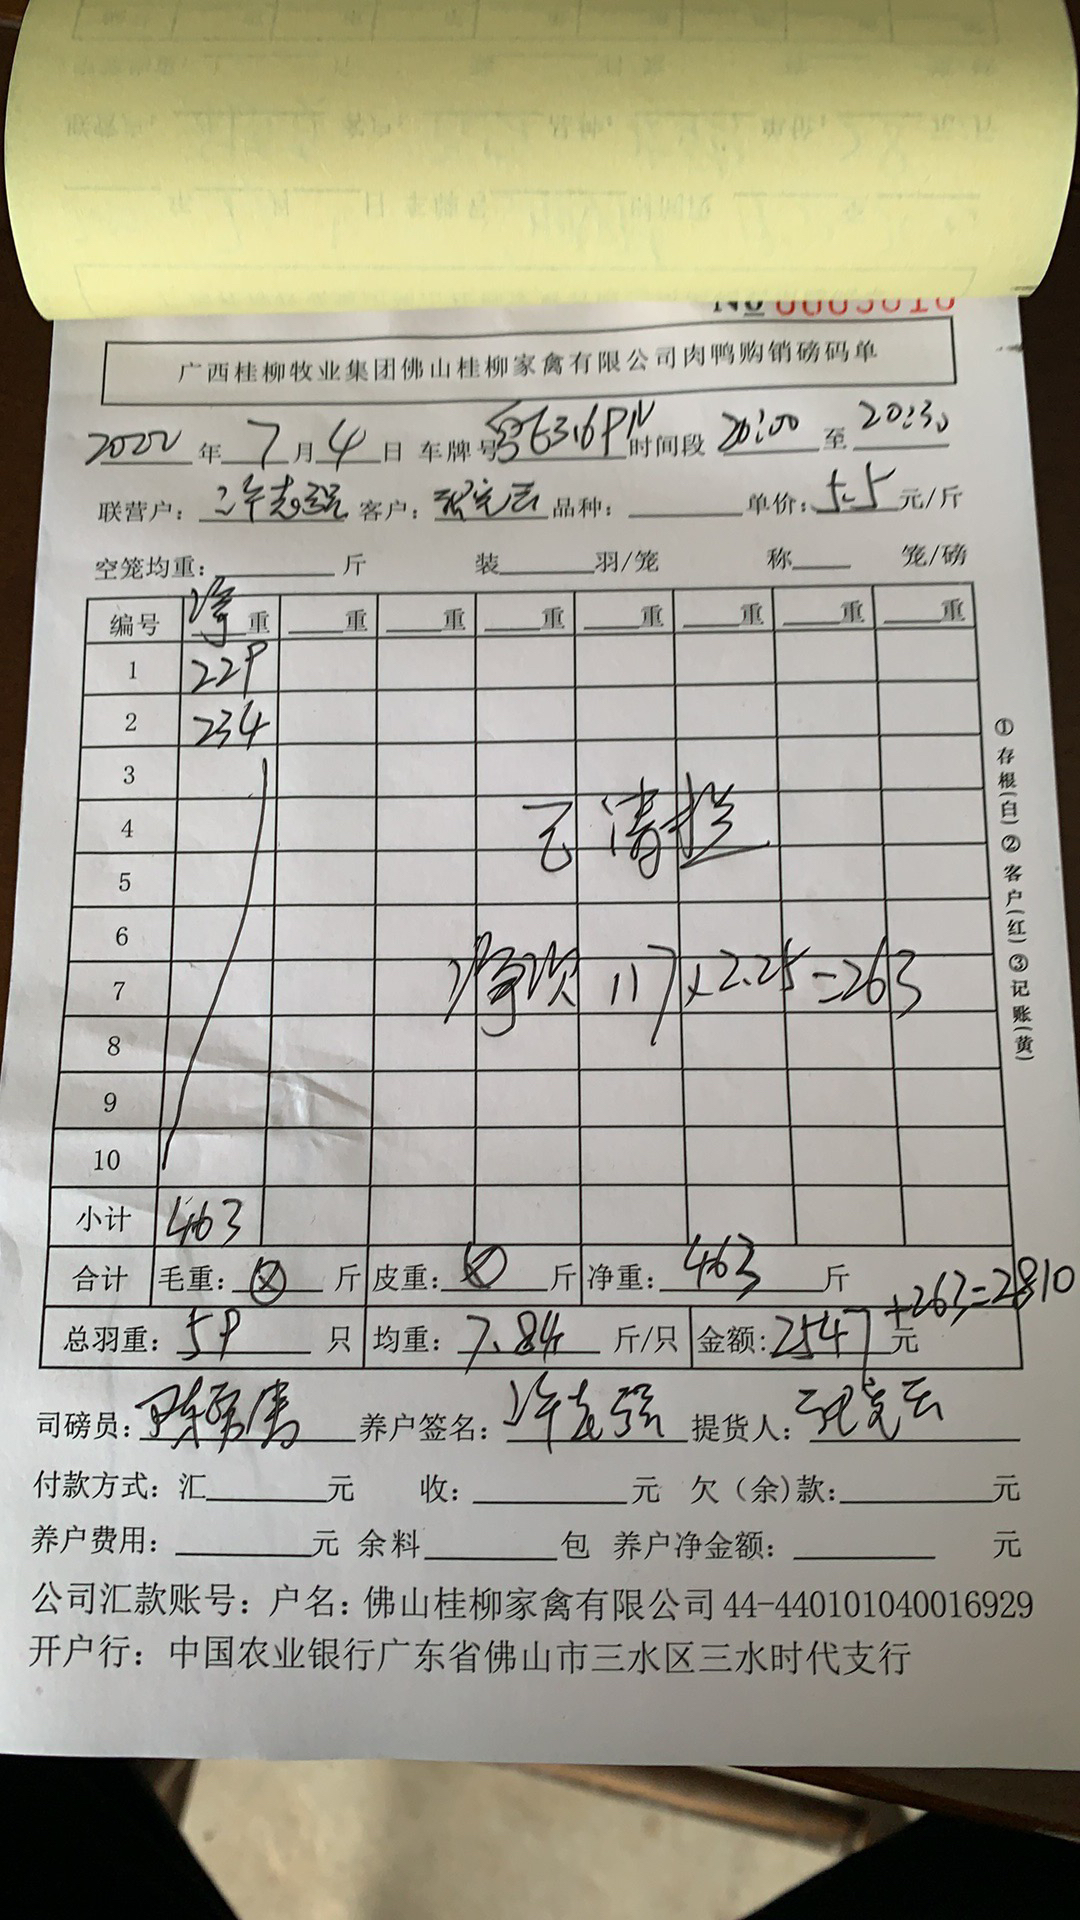 广西桂柳牧业集团佛山桂柳家禽有限公司肉鸭购销磅码单
2022年7月4日 车牌号 时间段 20:00 至 20:30
联营户： 客户： 品种： 单价：5.5元/斤
空笼均重： 斤 装 羽/笼 称 笼/磅
编号 净重 重 重 重 重 重 重 重
1 229
2 234
3
4
5
6
7 117×2.25=263
8
9
10
小计 463
合计 毛重： 斤 皮重： 斤 净重：463 斤
+263=2810
总羽重：59 只 均重：7.84 斤/只 金额：2547 元
司磅员： 养户签名： 提货人：
付款方式：汇 元 收： 元 欠（余)款： 元
养户费用： 元 余料 包 养户净金额： 元
公司汇款账号：户名：佛山桂柳家禽有限公司 44-440101040016929
开户行：中国农业银行广东省佛山市三水区三水时代支行
①存根(白)②客户(红)③记账(黄)